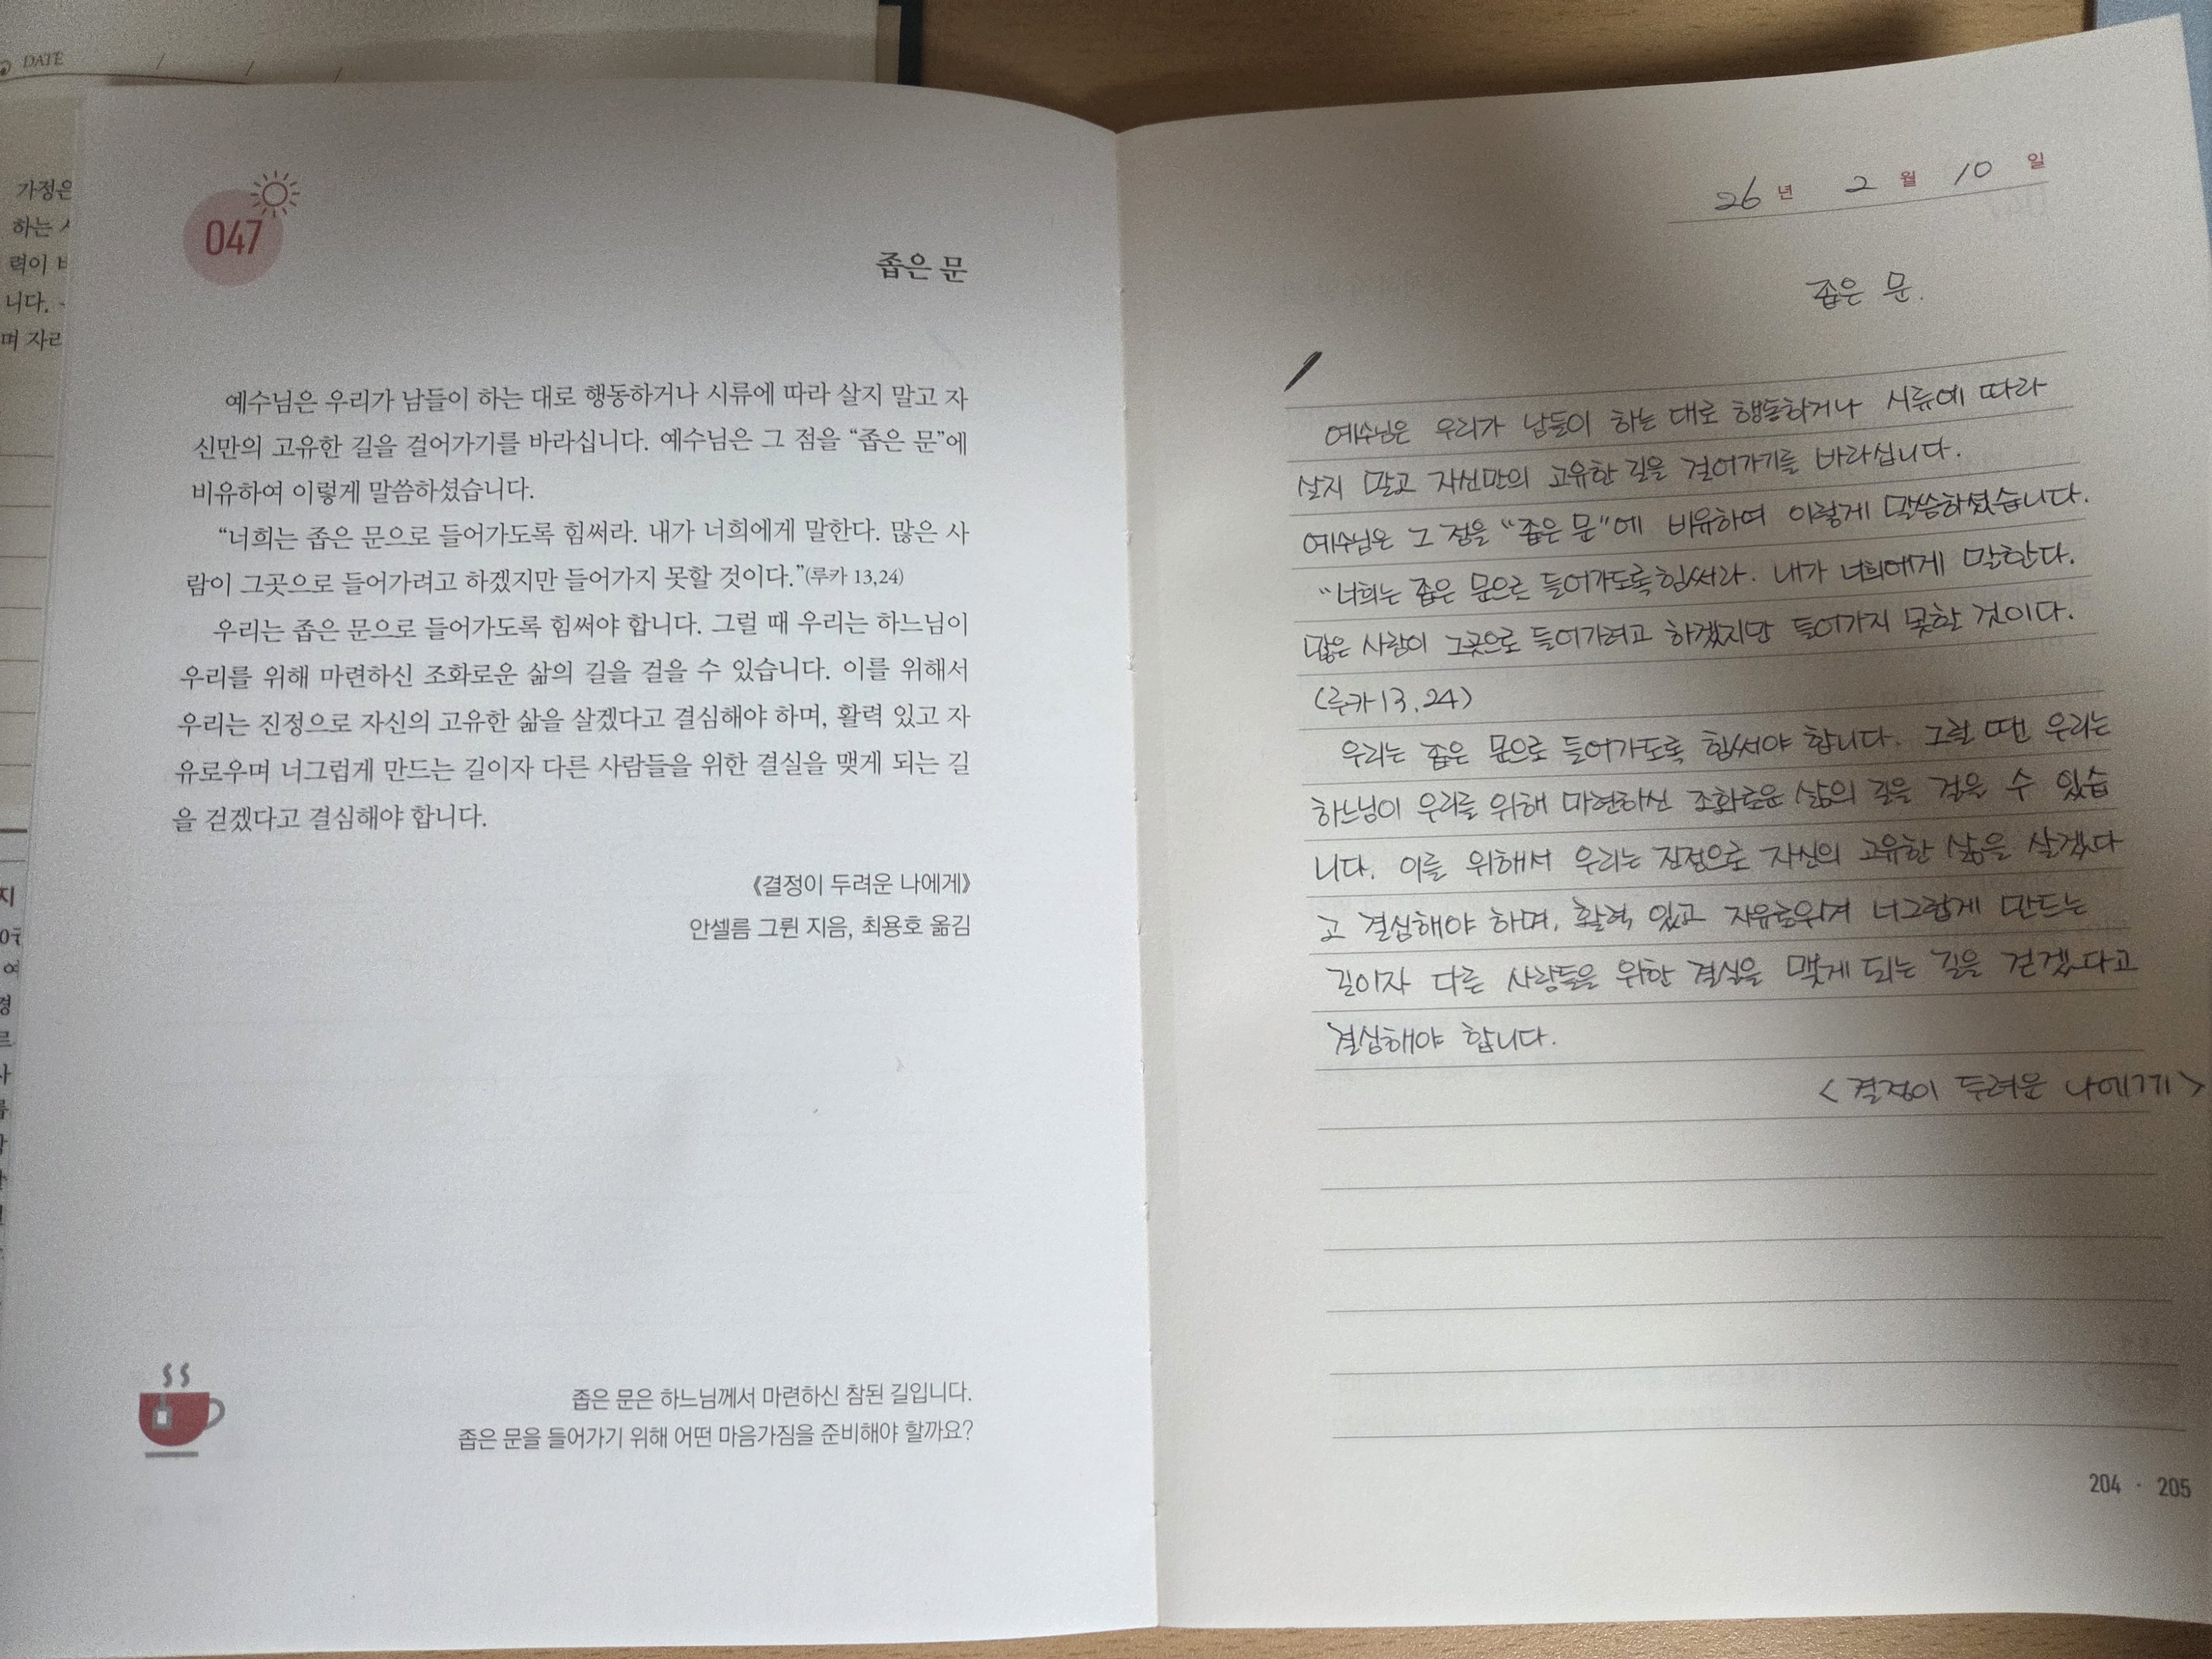 DATE / / /
가정은
하는
력이
니다.
며 자리
047
좁은 문
예수님은 우리가 남들이 하는 대로 행동하거나 시류에 따라 살지 말고 자
신만의 고유한 길을 걸어가기를 바라십니다. 예수님은 그 점을 “좁은 문”에
비유하여 이렇게 말씀하셨습니다.
“너희는 좁은 문으로 들어가도록 힘써라. 내가 너희에게 말한다. 많은 사
람이 그곳으로 들어가려고 하겠지만 들어가지 못할 것이다.”(루카 13,24)
우리는 좁은 문으로 들어가도록 힘써야 합니다. 그럴 때 우리는 하느님이
우리를 위해 마련하신 조화로운 삶의 길을 걸을 수 있습니다. 이를 위해서
우리는 진정으로 자신의 고유한 삶을 살겠다고 결심해야 하며, 활력 있고 자
유로우며 너그럽게 만드는 길이자 다른 사람들을 위한 결실을 맺게 되는 길
을 걷겠다고 결심해야 합니다.
《결정이 두려운 나에게》
안셀름 그륀 지음, 최용호 옮김
좁은 문은 하느님께서 마련하신 참된 길입니다.
좁은 문을 들어가기 위해 어떤 마음가짐을 준비해야 할까요?
26 년 2 월 10 일
좁은 문.
예수님은 우리가 남들이 하는 대로 행동하거나 시류에 따라
살지 말고 자신만의 고유한 길을 걸어가기를 바라십니다.
예수님은 그 점을 “좁은 문”에 비유하여 이렇게 말씀하셨습니다.
“너희는 좁은 문으로 들어가도록 힘써라. 내가 너희에게 말한다.
많은 사람이 그곳으로 들어가려고 하겠지만 들어가지 못할 것이다.
(루카 13,24)
우리는 좁은 문으로 들어가도록 힘써야 합니다. 그럴 땐 우리는
하느님이 우리를 위해 마련하신 조화로운 삶의 길을 걸을 수 있습
니다. 이를 위해서 우리는 진정으로 자신의 고유한 삶을 살겠다
고 결심해야 하며, 활력 있고 자유로우며 너그럽게 만드는
길이자 다른 사람들을 위한 결실을 맺게 되는 길을 걷겠다고
결심해야 합니다.
<결정이 두려운 나에게>
204 · 205